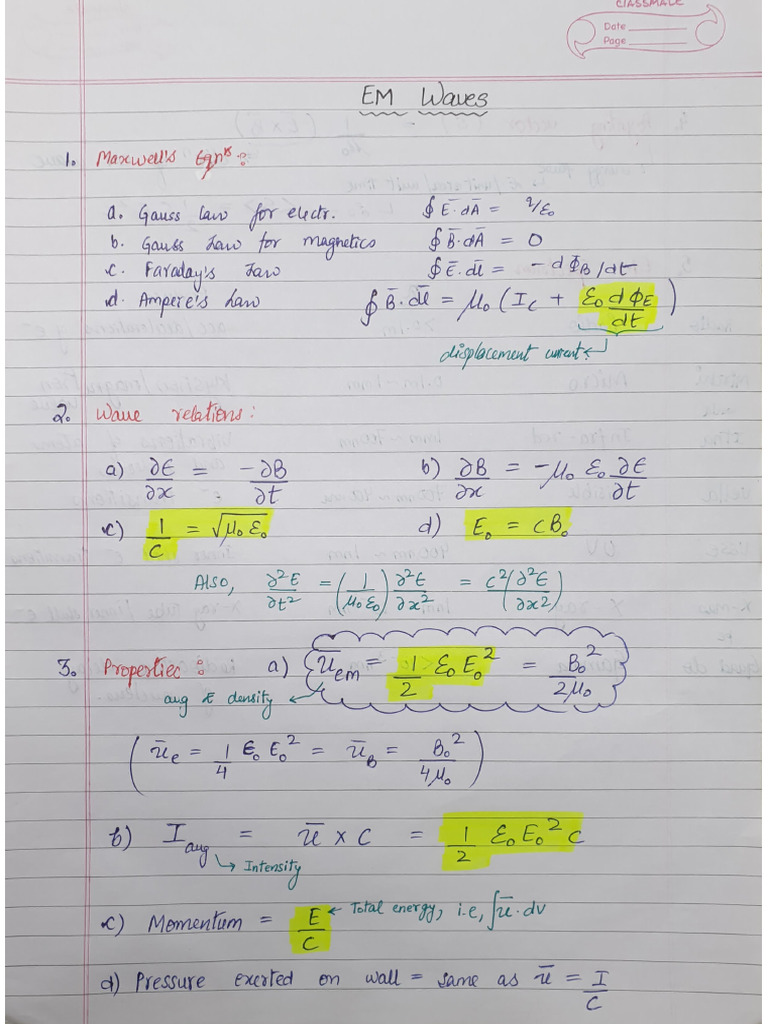 CLASSMATE
Date
Page
EM Waves
1. Maxwell's Eqns:
a. Gauss law for electr. ∮ E̅·dA̅ = q/ε₀
b. Gauss Law for magnetics ∮ B̅·dA̅ = 0
c. Faraday's Law ∮ E̅·dl̅ = -dΦ_B/dt
d. Ampere's Law ∮ B̅·dl̅ = μ₀ (I_c + ε₀ dΦ_E/dt)
displacement current
2. Wave relations:
a) ∂E/∂x = -∂B/∂t b) ∂B/∂x = -μ₀ ε₀ ∂E/∂t
c) 1/C = √μ₀ε₀ d) E₀ = cB₀
Also, ∂²E/∂t² = (1/μ₀ε₀) ∂²E/∂x² = c²(∂²E/∂x²)
3. Properties: a) u̅_em = 1/2 ε₀E₀² = B₀²/2μ₀
avg E density
(u̅_e = 1/4 ε₀E₀² = u̅_B = B₀²/4μ₀)
b) I_avg = u̅ × C = 1/2 ε₀E₀²C
↳ Intensity
c) Momentum = E/C ← Total energy, i.e, ∫u̅·dv
d) Pressure exerted on wall = same as u̅ = I/C